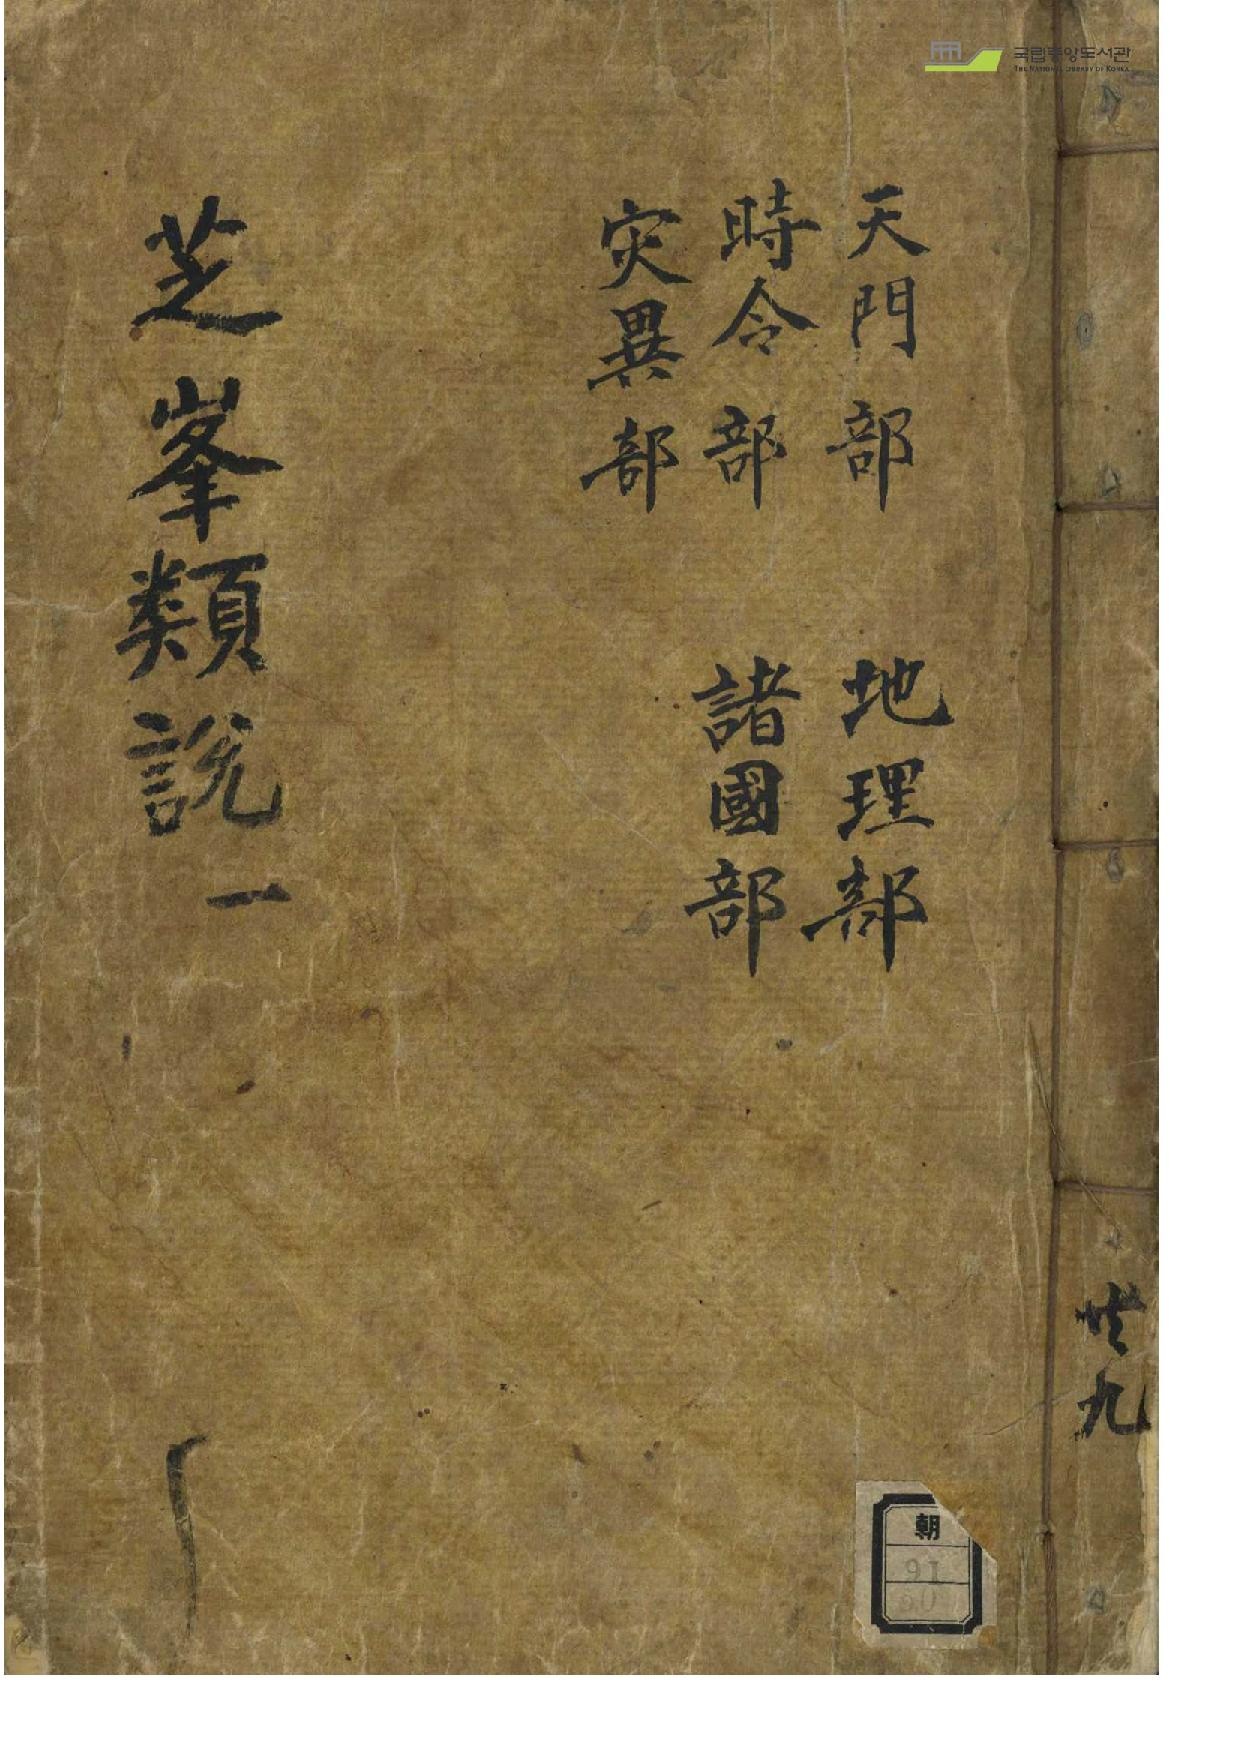 국립중앙도서관
THE NATIONAL LIBRARY OF KOREA
共九
天門部 地理部
時令部 諸國部
灾異部
芝峯類說 一
朝
91